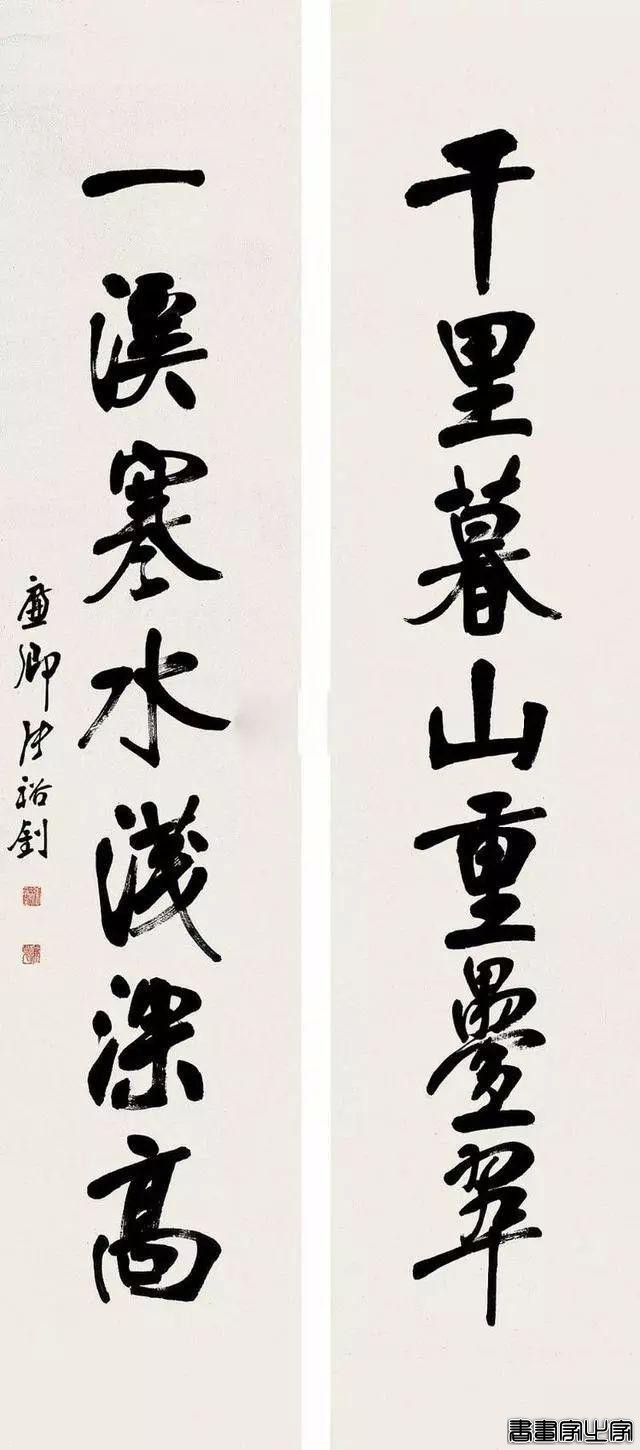 千里暮山重疊翠
一溪寒水淺深高
廉卿張裕釗
書畫家之家